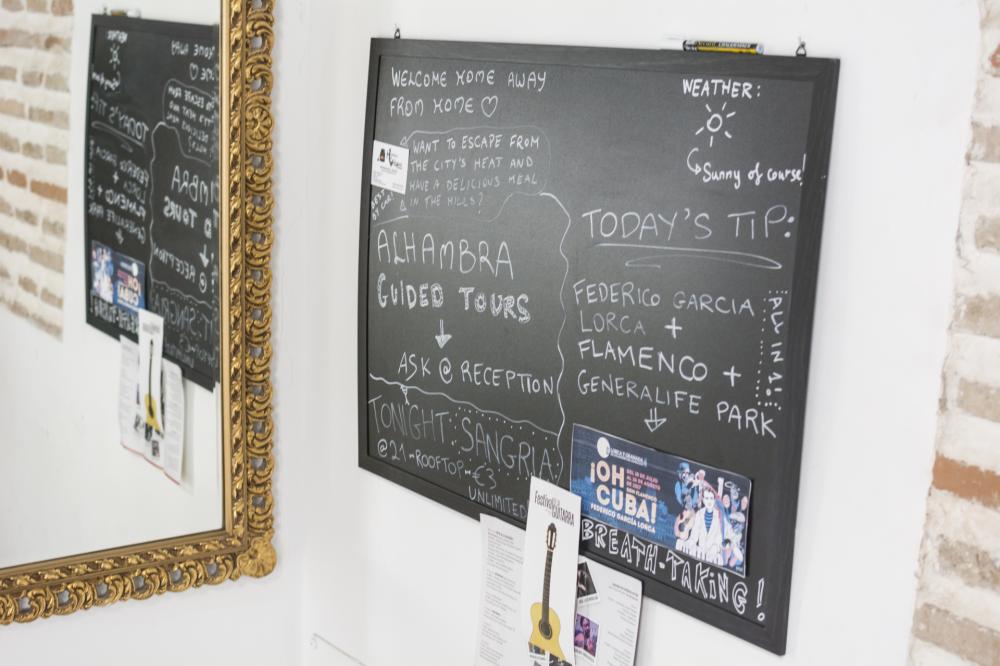 WELCOME HOME AWAY
FROM HOME ♡
WANT TO ESCAPE FROM
THE CITY'S HEAT AND
HAVE A DELICIOUS MEAL
IN THE HILLS?
ALHAMBRA
GUIDED TOURS
ASK @ RECEPTION
TONIGHT: SANGRIA :)
@21-ROOFTOP-€3
UNLIMITED
WEATHER:
Sunny of course!
TODAY'S TIP:
FEDERICO GARCIA
LORCA +
FLAMENCO +
GENERALIFE PARK
ALL IN 1 GO!
LORCA Y GRANADA
¡OH
CUBA!
FEDERICO GARCÍA LORCA
BREATH-TAKING!
Festival de la
GUITARRA